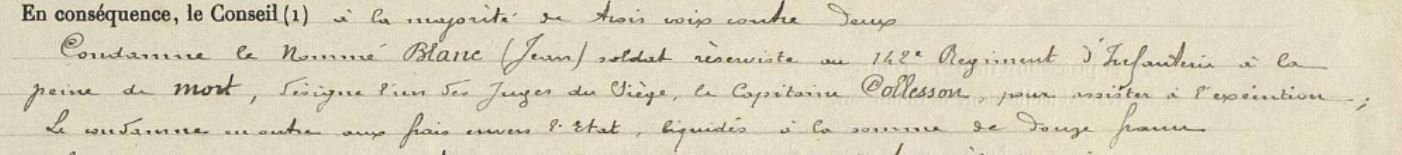 En conséquence, le Conseil (1) à la majorité de trois voix contre deux
Condamne le Nommé Blanc (Jean) soldat réserviste au 142e Regiment d'Infanterie à la
peine de mort, désigne l'un des Juges du Siège, le Capitaine Collesson, pour assister à l'exécution ;
Le condamne en outre aux frais envers l'Etat, liquidés à la somme de douze francs